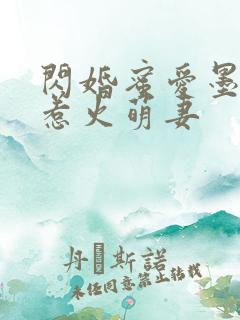 閃婚蜜愛墨
惹火萌妻
丹 斯諾
未任同意禁止